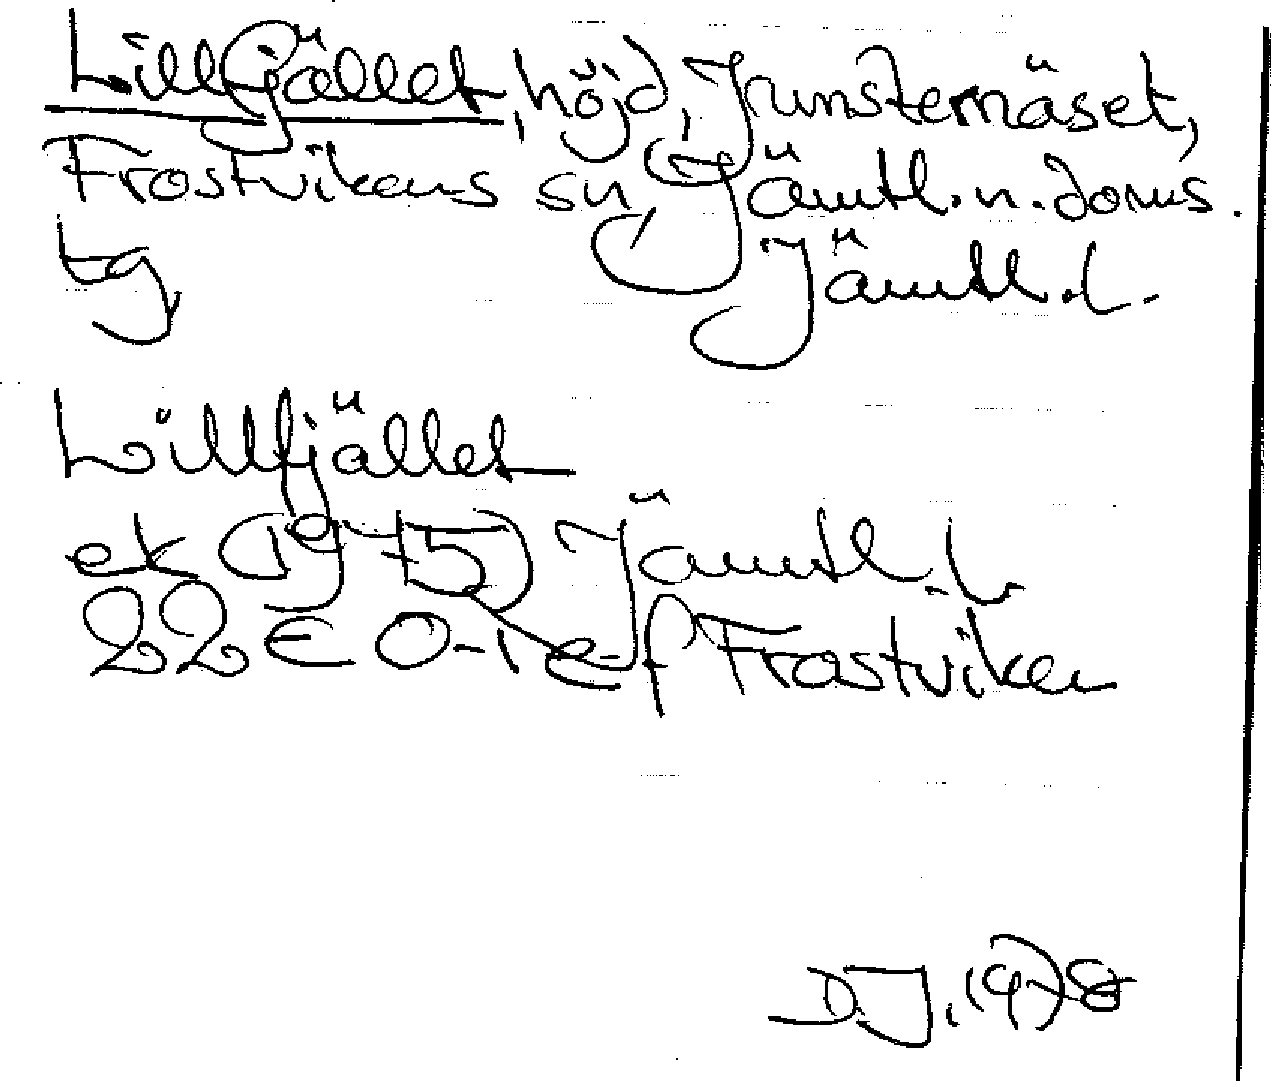 Lillfjället, höjd, Junsternäset,
Frostvikens sn, Jämtl. n. doms.
tg Jämtl. l.
Lillfjället
ek (1975) Jämtl. l.
22E 0-1 e-f Frostviken
DJ. 1978